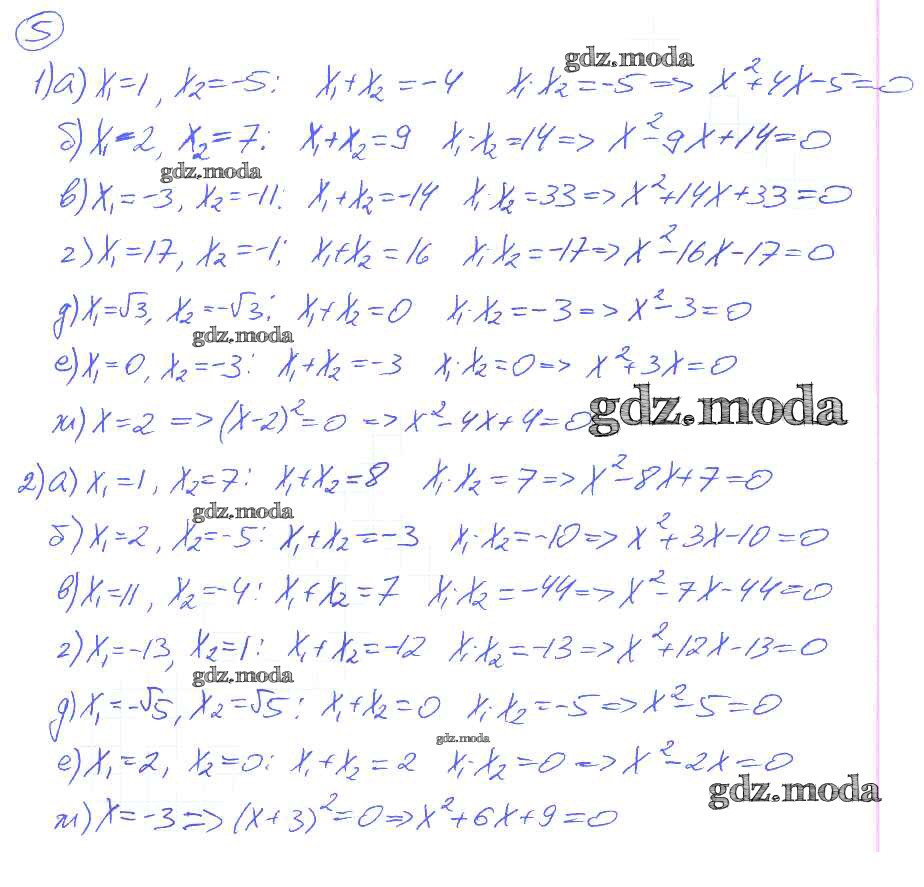 5
gdz.moda
1) а) x₁=1, x₂=-5: x₁+x₂=-4 x₁·x₂=-5 => x²+4x-5=0
б) x₁=2, x₂=7: x₁+x₂=9 x₁·x₂=14 => x²-9x+14=0
gdz.moda
в) x₁=-3, x₂=-11: x₁+x₂=-14 x₁·x₂=33 => x²+14x+33=0
г) x₁=17, x₂=-1; x₁+x₂=16 x₁·x₂=-17 => x²-16x-17=0
д) x₁=√3, x₂=-√3; x₁+x₂=0 x₁·x₂=-3 => x²-3=0
gdz.moda
е) x₁=0, x₂=-3: x₁+x₂=-3 x₁·x₂=0 => x²+3x=0
gdz.moda
ж) x=2 => (x-2)²=0 => x²-4x+4=0
2) а) x₁=1, x₂=7: x₁+x₂=8 x₁·x₂=7 => x²-8x+7=0
gdz.moda
б) x₁=2, x₂=-5: x₁+x₂=-3 x₁·x₂=-10 => x²+3x-10=0
в) x₁=11, x₂=-4: x₁+x₂=7 x₁·x₂=-44 => x²-7x-44=0
г) x₁=-13, x₂=1: x₁+x₂=-12 x₁·x₂=-13 => x²+12x-13=0
gdz.moda
д) x₁=-√5, x₂=√5: x₁+x₂=0 x₁·x₂=-5 => x²-5=0
gdz.moda
е) x₁=2, x₂=0: x₁+x₂=2 x₁·x₂=0 => x²-2x=0
gdz.moda
ж) x=-3 => (x+3)²=0 => x²+6x+9=0